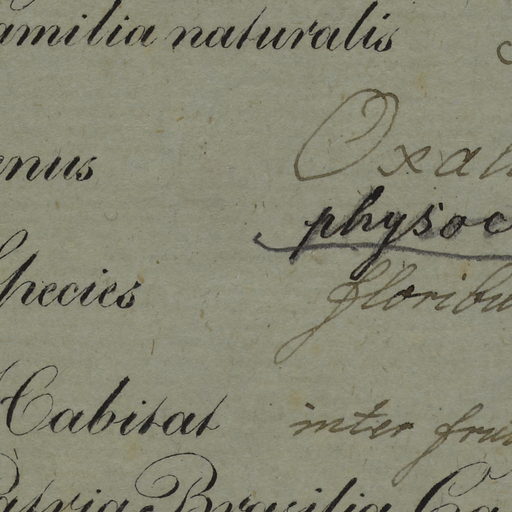 amilia naturalis
enus Oxal
physoc
Species floribu
Habitat inter fru
Patria Brasilia Ca